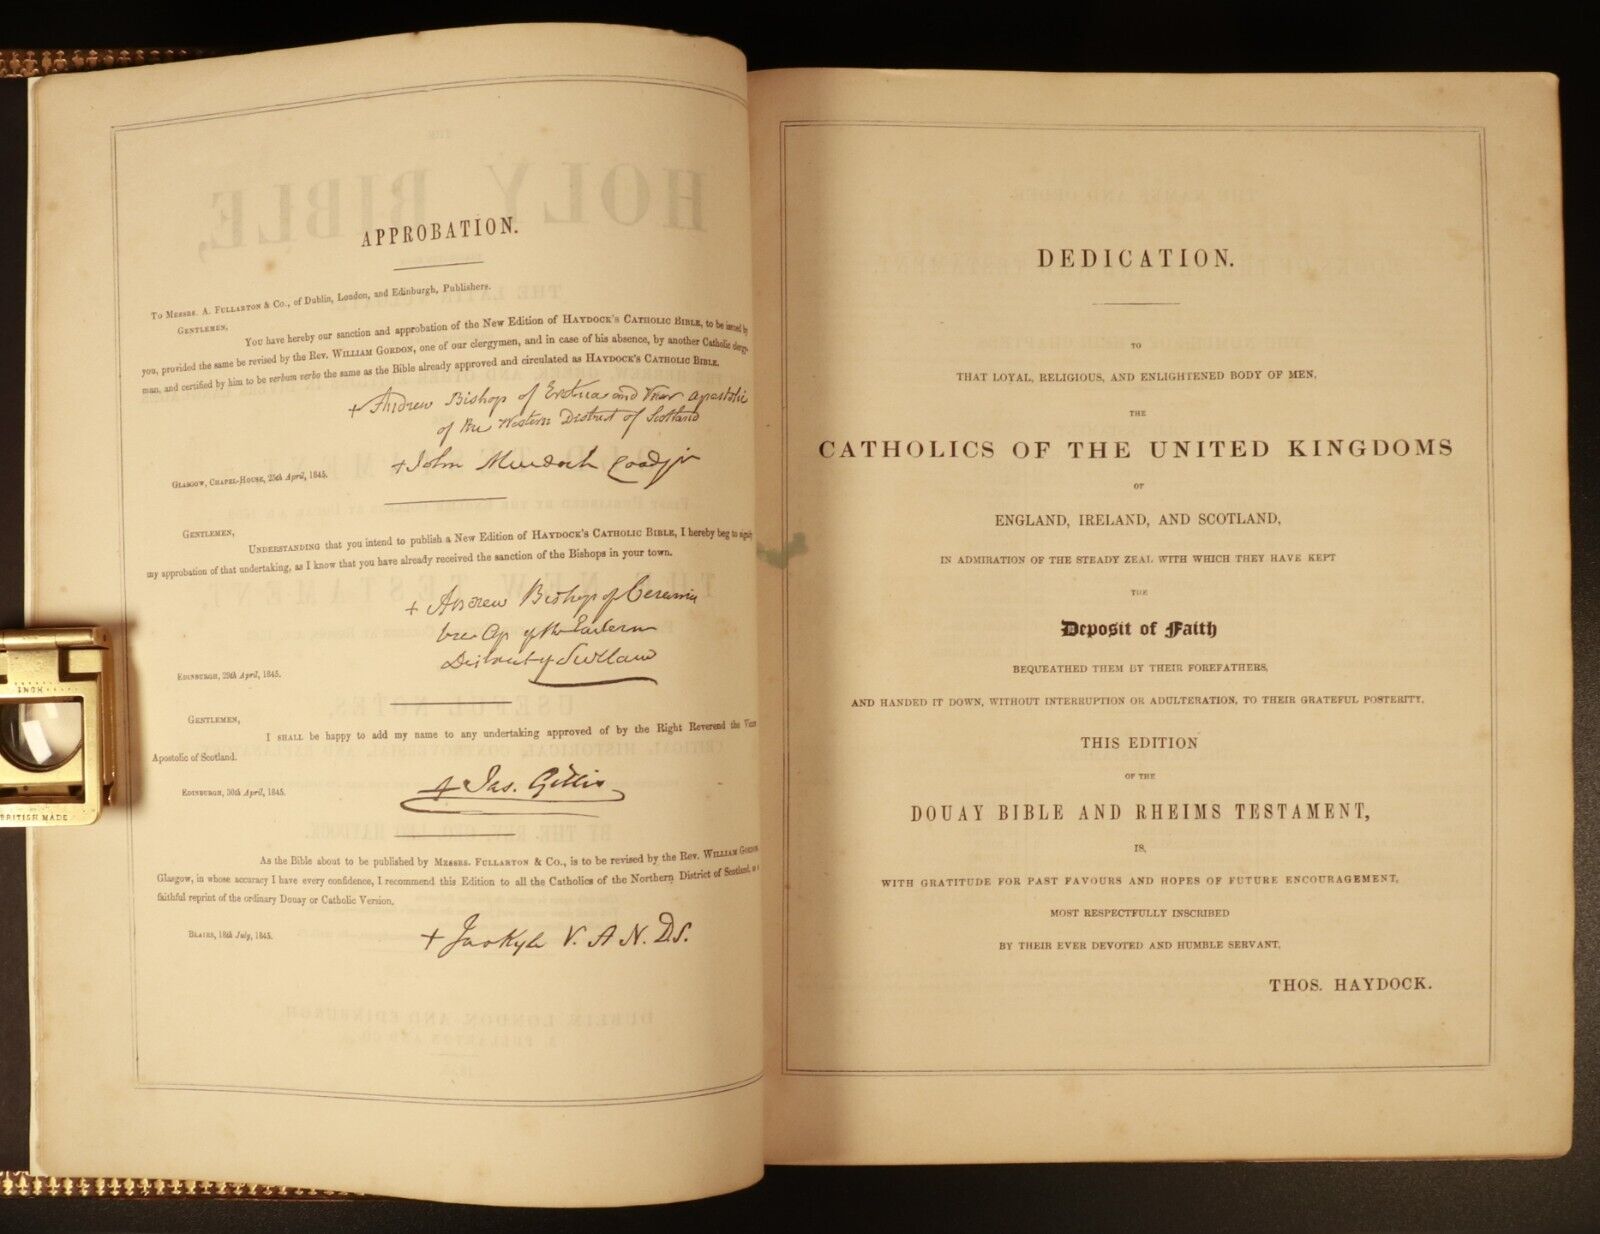 APPROBATION.
To Messrs. A. Fullarton & Co., of Dublin, London, and Edinburgh, Publishers.
Gentlemen,
You have hereby our sanction and approbation of the New Edition of Haydock's Catholic Bible, to be issued by
you, provided the same be revised by the Rev. William Gordon, one of our clergymen, and in case of his absence, by another Catholic clergy-
man, and certified by him to be verbum verbo the same as the Bible already approved and circulated as Haydock's Catholic Bible.
+ Andrew Bishop of Eretria and Vicar Apostolic
of the Western District of Scotland
+ John Murdoch Coadjr
Glasgow, Chapel-House, 25th April, 1845.
Gentlemen,
Understanding that you intend to publish a New Edition of Haydock's Catholic Bible, I hereby beg to signify
my approbation of that undertaking, as I know that you have already received the sanction of the Bishops in your town.
+ Andrew Bishop of Ceramis
Vic Ap of the Eastern
District of Scotland
Edinburgh, 29th April, 1845.
Gentlemen,
I shall be happy to add my name to any undertaking approved of by the Right Reverend the Vicar
Apostolic of Scotland.
+ Jas. Gillis
Edinburgh, 30th April, 1845.
As the Bible about to be published by Messrs. Fullarton & Co., is to be revised by the Rev. William Gordon
Glasgow, in whose accuracy I have every confidence, I recommend this Edition to all the Catholics of the Northern District of Scotland, as a
faithful reprint of the ordinary Douay or Catholic Version.
Blairs, 18th July, 1845.
+ Jas Kyle V. A N. D.S.
DEDICATION.
TO
THAT LOYAL, RELIGIOUS, AND ENLIGHTENED BODY OF MEN,
THE
CATHOLICS OF THE UNITED KINGDOMS
OF
ENGLAND, IRELAND, AND SCOTLAND,
IN ADMIRATION OF THE STEADY ZEAL WITH WHICH THEY HAVE KEPT
THE
Deposit of Faith
BEQUEATHED THEM BY THEIR FOREFATHERS,
AND HANDED IT DOWN, WITHOUT INTERRUPTION OR ADULTERATION, TO THEIR GRATEFUL POSTERITY,
THIS EDITION
OF THE
DOUAY BIBLE AND RHEIMS TESTAMENT,
IS,
WITH GRATITUDE FOR PAST FAVOURS AND HOPES OF FUTURE ENCOURAGEMENT,
MOST RESPECTFULLY INSCRIBED
BY THEIR EVER DEVOTED AND HUMBLE SERVANT,
THOS. HAYDOCK.
INCH
BRITISH MADE